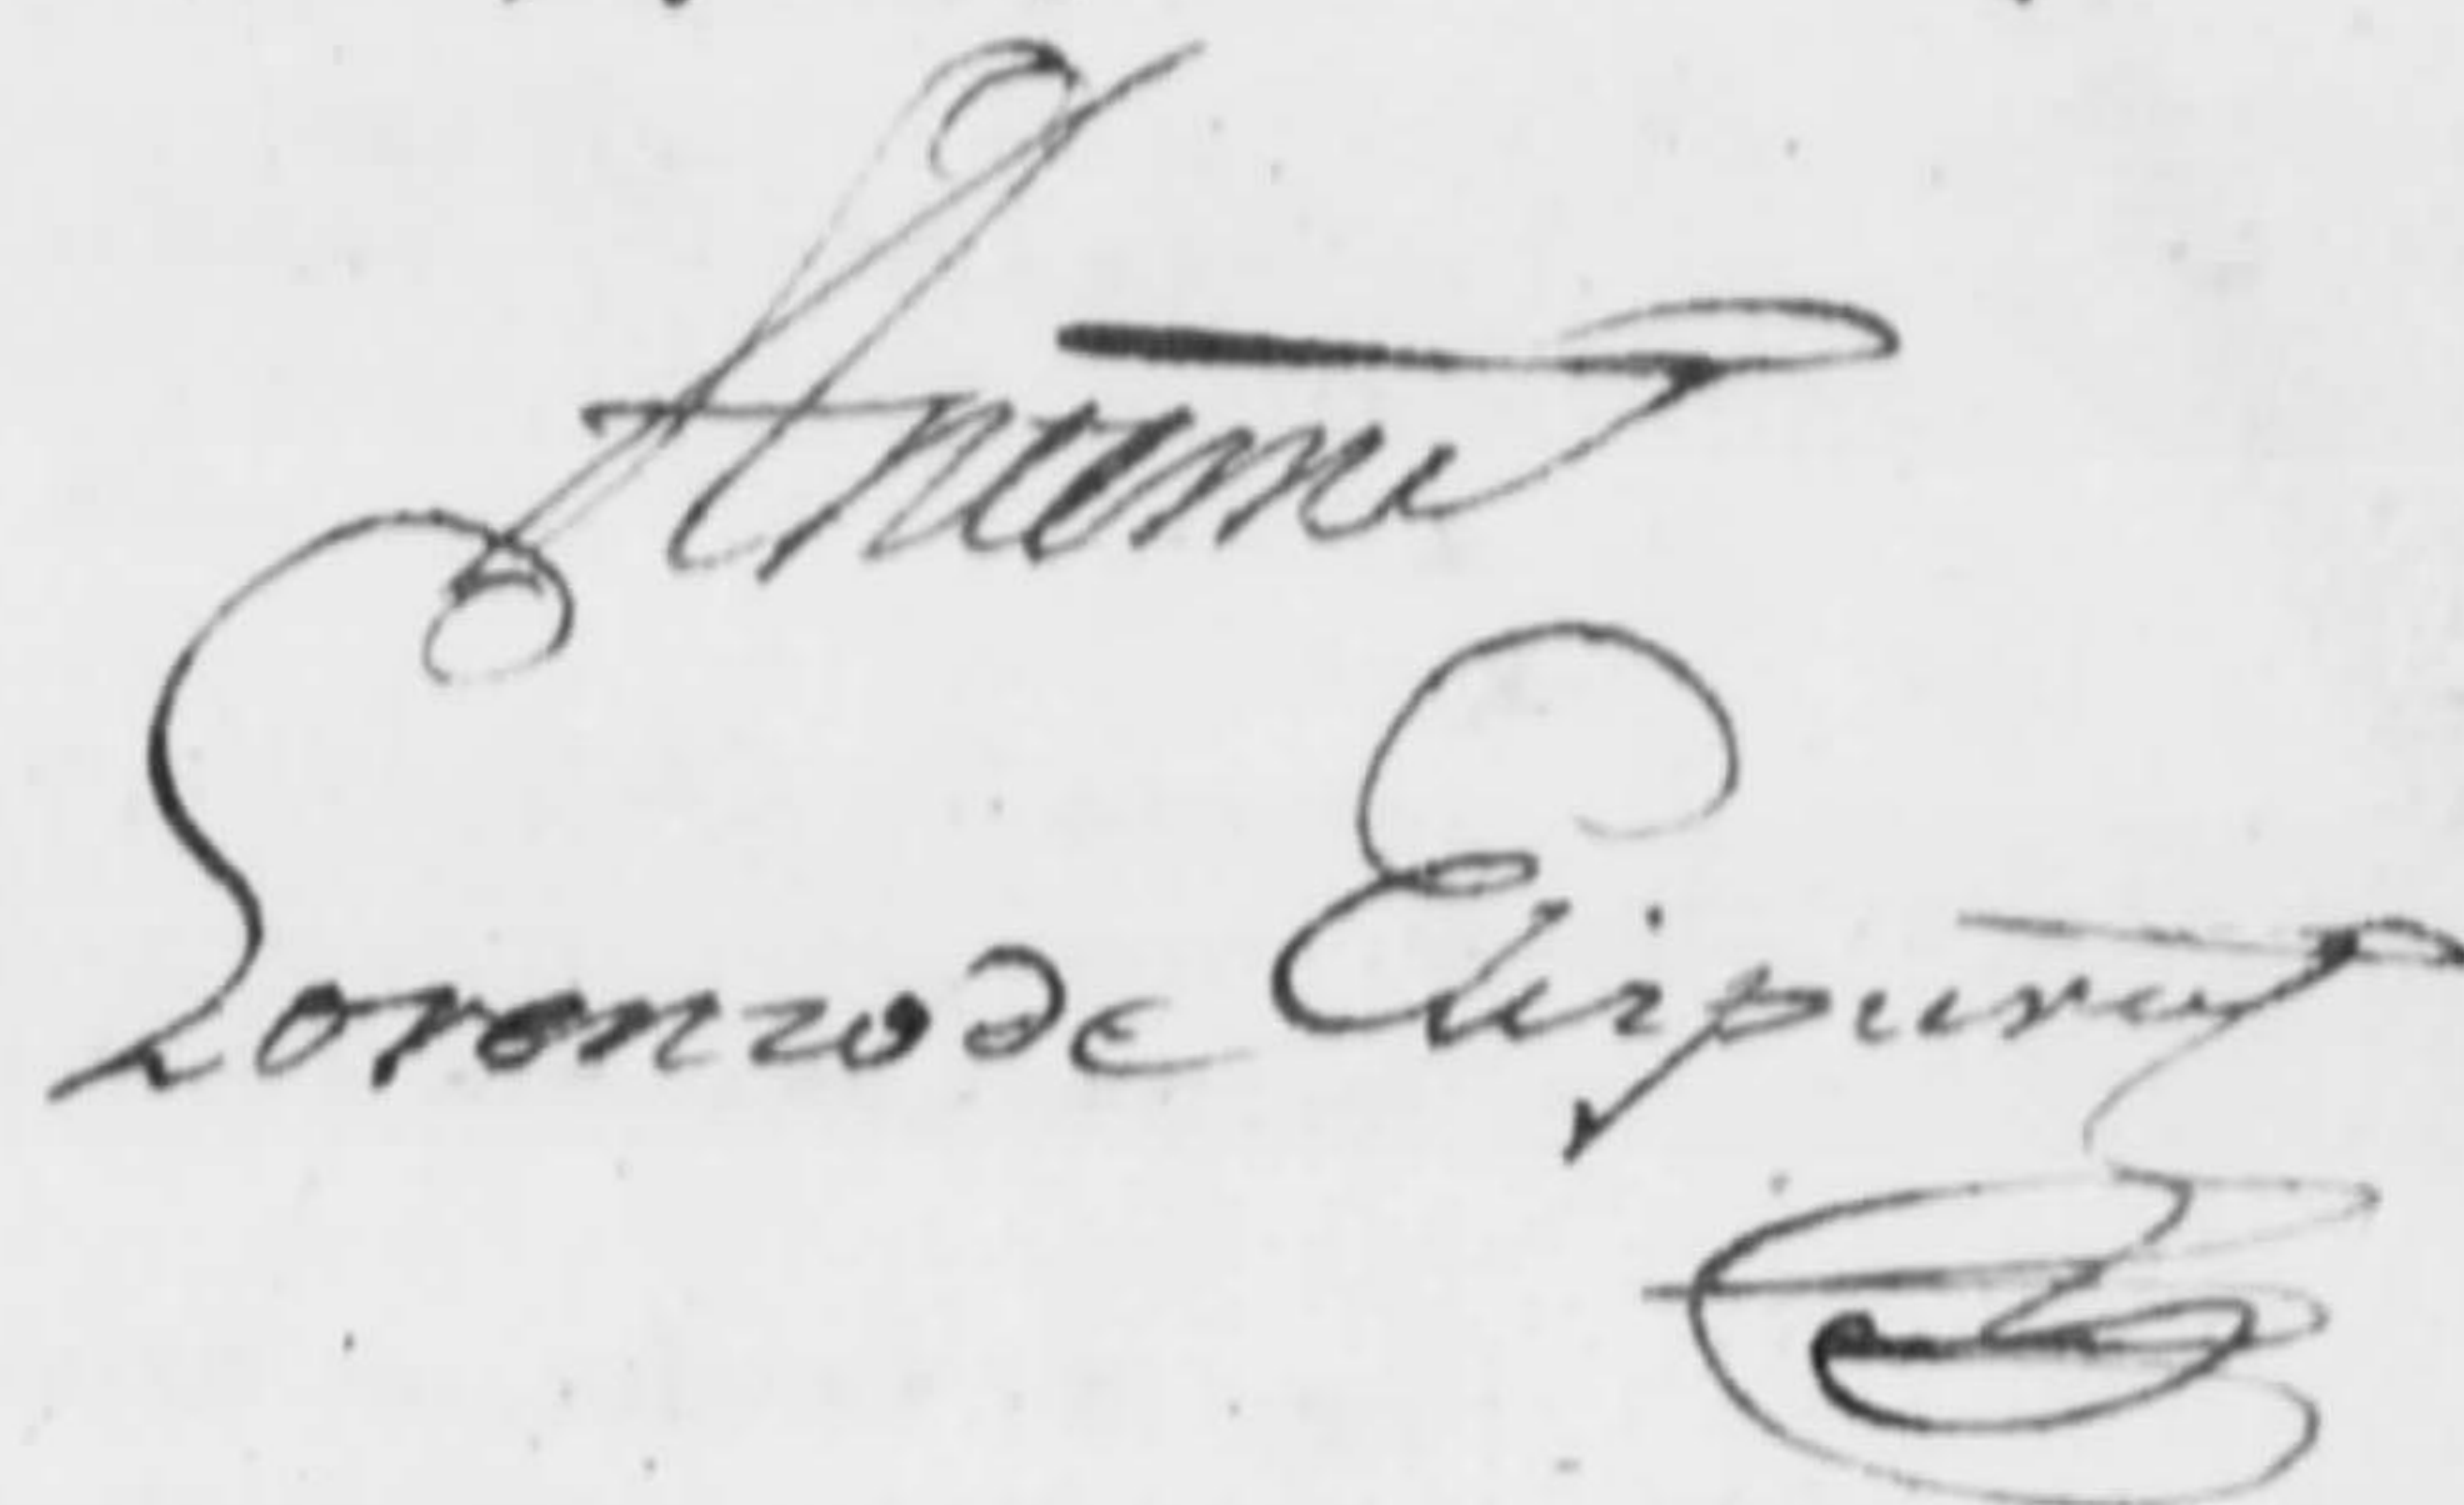 Ante mi
Lorenzo de Eizpuru